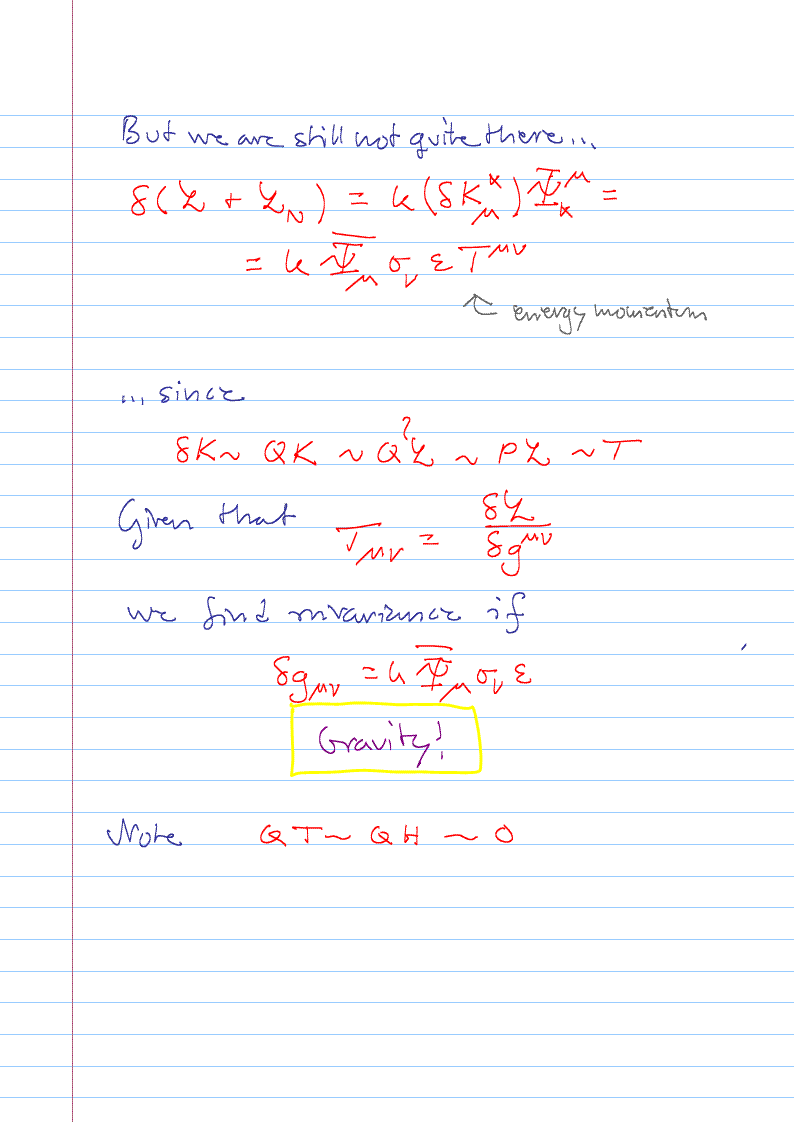 But we are still not quite there...
δ(ℒ + ℒ_N) = k(δK_μ^α)Ψ_α^μ =
= k Ψ̄_μ σ_ν ε T^{μν}
↖ energy momentum
... since
δK ~ QK ~ Q²ℒ ~ Pℒ ~ T
Given that T_{μν} = δℒ/δg^{μν}
we find invariance if
δg_{μν} = k Ψ̄_μ σ_ν ε
Gravity!
Note QT ~ QH ~ 0